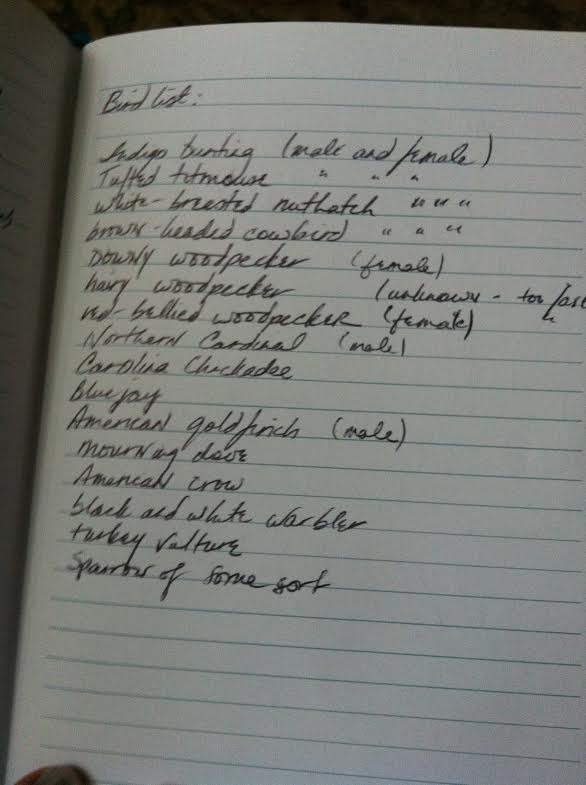 Bird list:
Indigo bunting (male and female)
Tufted titmouse " " "
white-breasted nuthatch " " " "
brown-headed cowbird " " "
Downy woodpecker (female)
hairy woodpecker (unknown - too fast
red-bellied woodpecker (female)
Northern Cardinal (male)
Carolina Chickadee
Blue jay
American goldfinch (male)
mourning dove
American crow
black and white warbler
turkey vulture
Sparrow of some sort